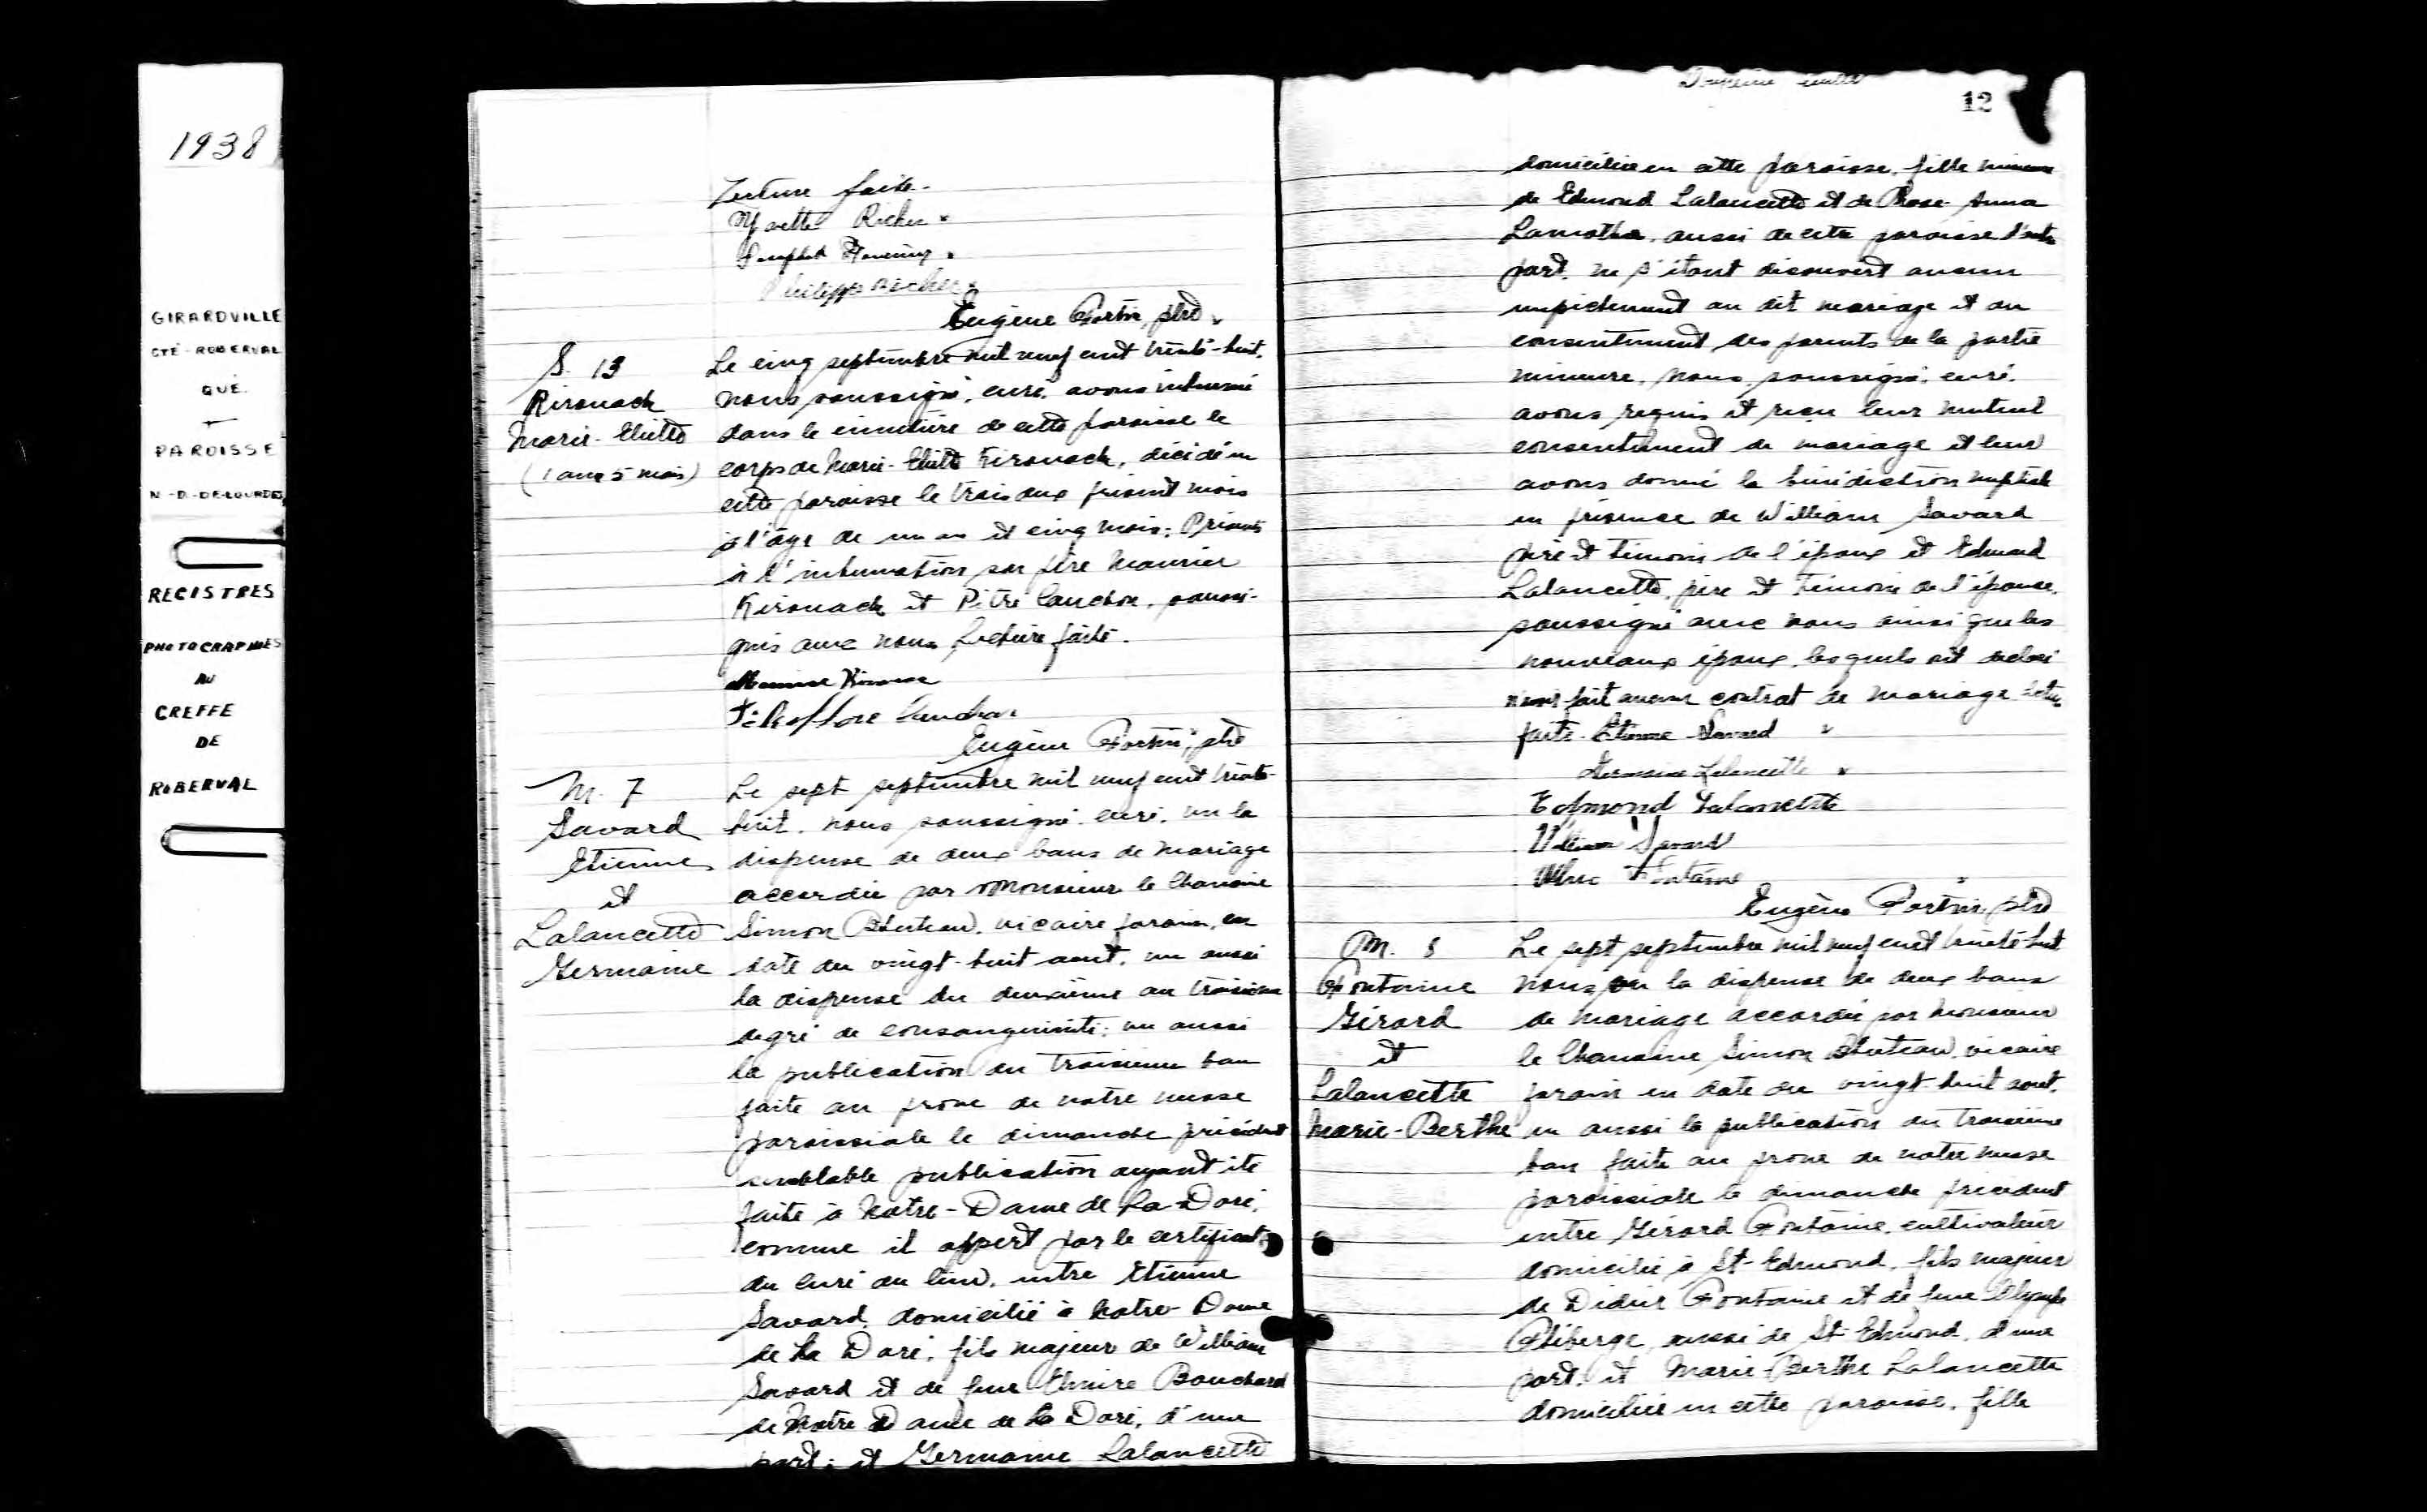 1938
GIRARDVILLE
CTÉ-ROBERVAL
QUÉ.
PAROISSE
N.-D.-DE-LOURDES
REGISTRES
PHOTOGRAPHIÉS
AU
GREFFE
DE
ROBERVAL
Lecture faite.
Yvette Richer
Philippe Richer
Eugène Fortin, ptre
S. 13
Kirouack
Marie-Eliette
(1 an 5 mois)
Le cinq septembre mil neuf cent trente-huit,
nous soussigné, curé, avons inhumé
dans le cimetière de cette paroisse le
corps de Marie-Eliette Kirouack, décédée en
cette paroisse le trois du présent mois
à l'âge de un an et cinq mois; Présents
à l'inhumation son père Maurice
Kirouack et Pitre Cauchon, soussi-
gnés avec nous. Lecture faite.
Maurice
Eugène Fortin, ptre
M. 7
Savard
Etienne
et
Lalancette
Germaine
Le sept septembre mil neuf cent trente-
huit, nous soussigné curé, vu la
dispense de deux bans de mariage
accordée par Monsieur le Chanoine
Simon Bluteau, vicaire forain, en
date du vingt-huit août, vu aussi
la dispense du deuxième au troisième
degré de consanguinité; vu aussi
la publication du troisième ban
faite au prone de notre messe
paroissiale le dimanche précédent
semblable publication ayant été
faite à Notre-Dame de La Doré,
comme il appert par le certificat
du curé du lieu, entre Etienne
Savard, domicilié à Notre-Dame
de La Doré, fils majeur de William
Savard et de feue Elmire Bouchard
de Notre Dame de La Doré, d'une
part; et Germaine Lalancette
12
domiciliée en cette paroisse, fille mineure
de Edmond Lalancette et de Rose-Anna
Lamothe, aussi de cette paroisse d'autre
part, ne s'étant découvert aucun
empêchement au dit mariage et au
consentement des parents de la partie
mineure, nous, soussigné, curé,
avons requis et reçu leur mutuel
consentement de mariage et leur
avons donné la bénédiction nuptiale
en présence de William Savard
père et témoin de l'époux et Edmond
Lalancette, père et témoin de l'épouse,
soussignés avec nous ainsi que les
nouveaux époux, lesquels ont déclaré
n'avoir fait aucun contrat de mariage. Lecture
faite. Etienne Savard
Germaine Lalancette
Edmond Lalancette
William Savard
Fontaine
Eugène Fortin, ptre
M. 8
Fontaine
Gérard
et
Lalancette
Marie-Berthe
Le sept septembre mil neuf cent trente-huit
nous, vu la dispense de deux bans
de mariage accordée par Monsieur
le Chanoine Simon Bluteau, vicaire
forain en date du vingt-huit août,
vu aussi la publication du troisième
ban faite au prone de notre messe
paroissiale le dimanche précédent
entre Gérard Fontaine, cultivateur
domicilié à St-Edmond, fils majeur
de Didier Fontaine et de feue Olympe
Théberge, aussi de St-Edmond, d'une
part, et Marie-Berthe Lalancette
domiciliée en cette paroisse, fille